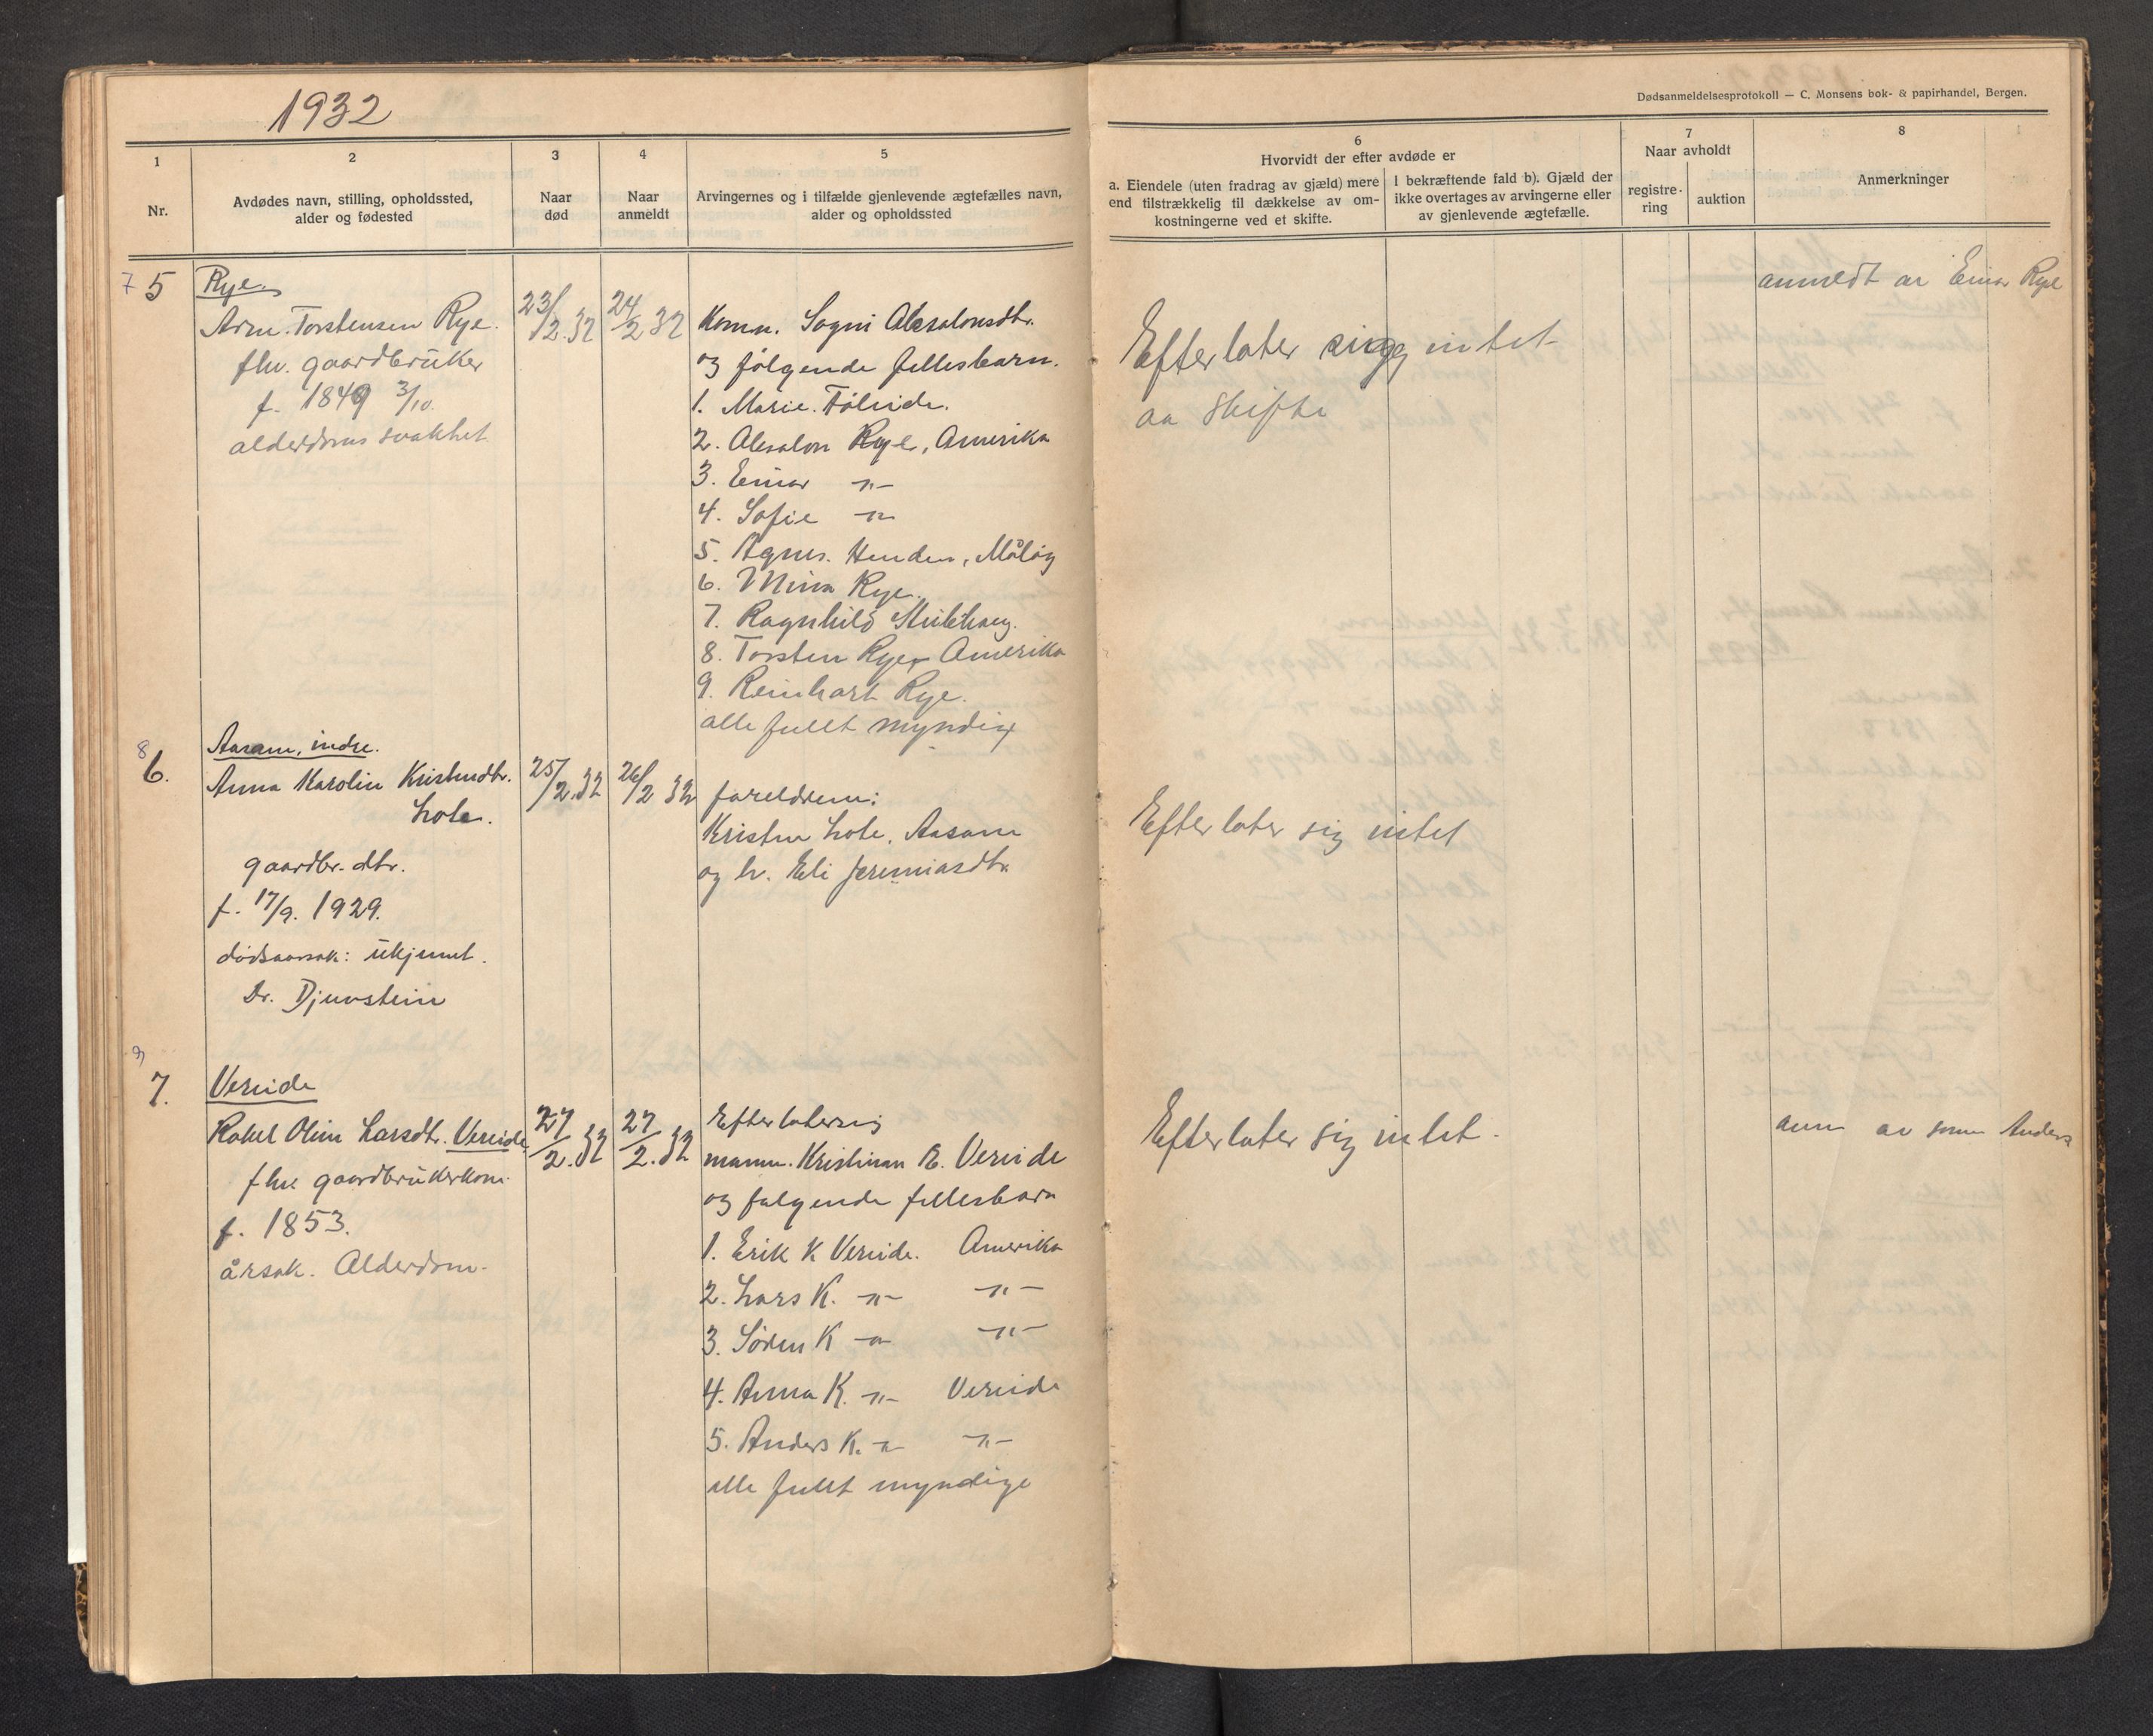 1932
Dødsanmeldelsesprotokoll — C. Monsens bok- & papirhandel, Bergen.
1
Nr.
2
Avdødes navn, stilling, opholdssted,
alder og fødested
3
Naar
død
4
Naar
anmeldt
5
Arvingernes og i tilfælde gjenlevende ægtefælles navn,
alder og opholdssted
6
Hvorvidt der efter avdøde er
a. Eiendele (uten fradrag av gjæld) mere
end tilstrækkelig til dækkelse av om-
kostningerne ved et skifte.
I bekræftende fald b). Gjæld der
ikke overtages av arvingerne eller
av gjenlevende ægtefælle.
7
Naar avholdt
registre-
ring
auktion
8
Anmerkninger
7 5
Rye.
Arne Torstensen Rye.
fhv. gaardbruker
f. 1849 3/10.
alderdoms svakhet
23/2.32
24/2 32
Kona. Sogni Absalonsdtr.
og følgende fellesbarn.
1. Marie
2. Absalon Rye, Amerika
3. Einar -"-
4. Sofie -"-
5. Agnes Henden, Måløy
6. Mina Rye.
7. Ragnhild
8. Torsten Rye, Amerika
9. Reinhart Rye.
alle fullt myndig
Efterlater sig intet
aa skifte
anmeldt av Einar Rye
8 6.
Aasam, indre.
Anna Karolin Kristendtr.
Lote.
gaardbr. dtr.
f. 17/9. 1929.
dødsaarsak: ukjennt.
Dr. Djuvstein
25/2.32
26/2 32
foreldrene:
Kristen Lote, Aasam
og h. Eli Jeremiasdtr.
Efterlater sig intet
9 7.
Vereide
Rakel Oline Larsdtr. Vereide
fhv gaardbrukerkone
f. 1853.
årsak. Alderdom.
27/2.32
27/2.32
Efterlater sig
mann. Kristian E. Vereide
og følgende fellesbarn
1. Erik K Vereide. Amerika
2. Lars K. -"- -"-
3. Søren K -"- -"-
4. Anna K. -"- Vereide
5. Anders K. -"- -"-
alle fullt myndige
Efterlater sig intet.
anm av sønn Anders